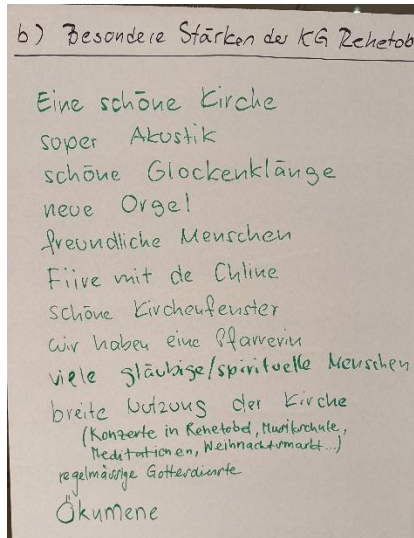 b) Besondere Stärken der KG Rehetob
Eine schöne Kirche
super Akustik
schöne Glockenklänge
neue Orgel
freundliche Menschen
Fiire mit de Chline
schöne Kirchenfenster
wir haben eine Pfarrerin
viele gläubige/spirituelle Menschen
breite Nutzung der Kirche
(Konzerte in Rehetobel, Musikschule,
Meditationen, Weihnachtsmarkt...)
regelmässige Gottesdienste
Ökumene